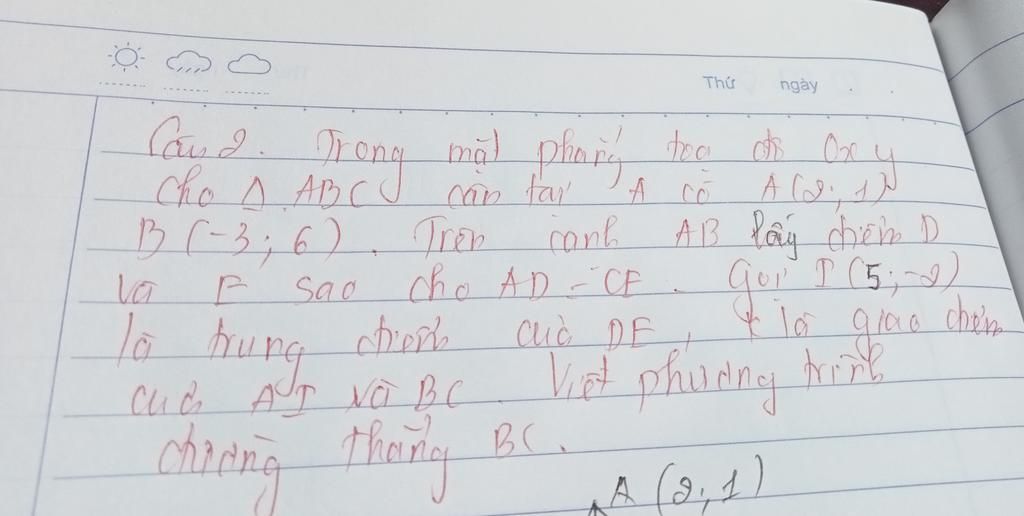 Thứ ngày
Câu 2. Trong mặt phẳng tọa độ Oxy
cho Δ ABC cân tại A có A(2; 1)
B(-3; 6). Trên cạnh AB lấy điểm D
và E sao cho AD = CE. Gọi I(5; -2)
là trung điểm của DE, K là giao điểm
của AI và BC. Viết phương trình
đường thẳng BC.
A(2; 1)